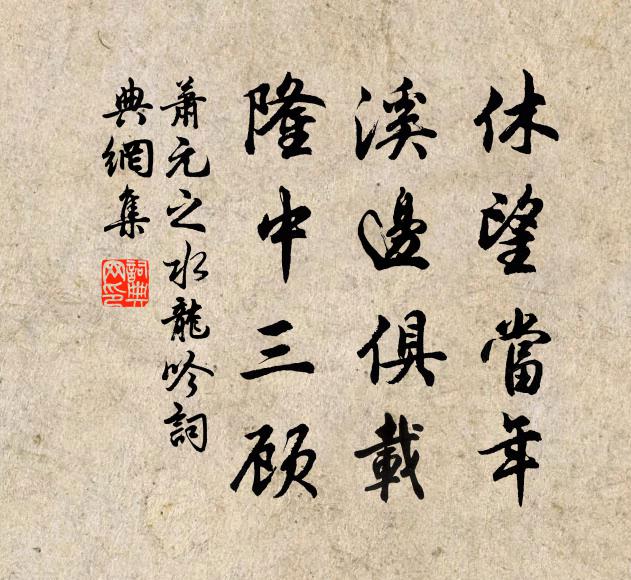 休望當年
溪邊俱載
隆中三顾
蕭元之水龍吟詞
典網集
詞典网印